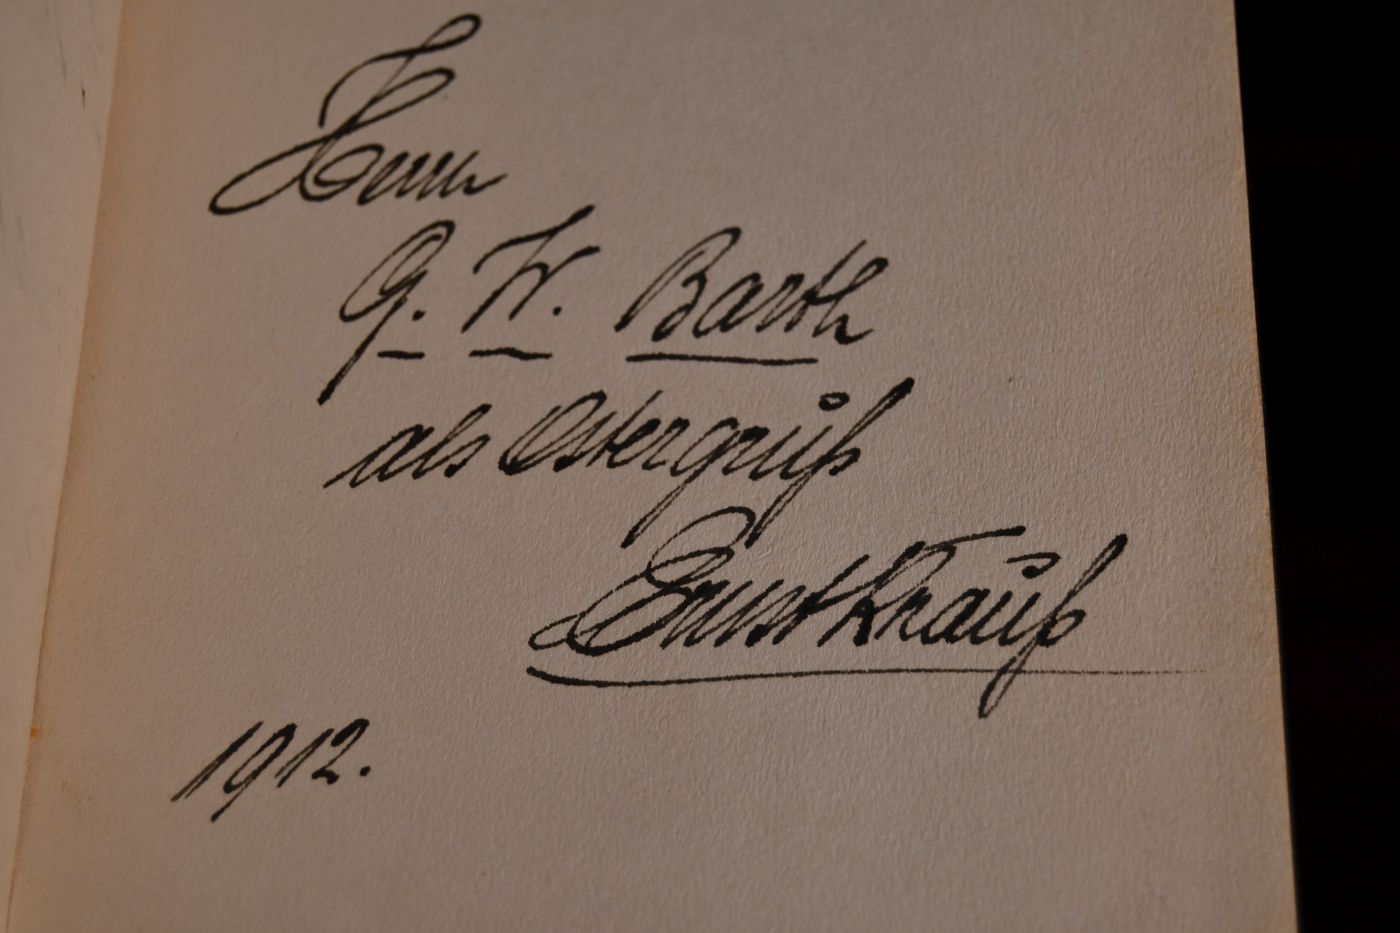 Herrn
G. W. Barth
als Ostergruß
Ernst Krauß
1912.